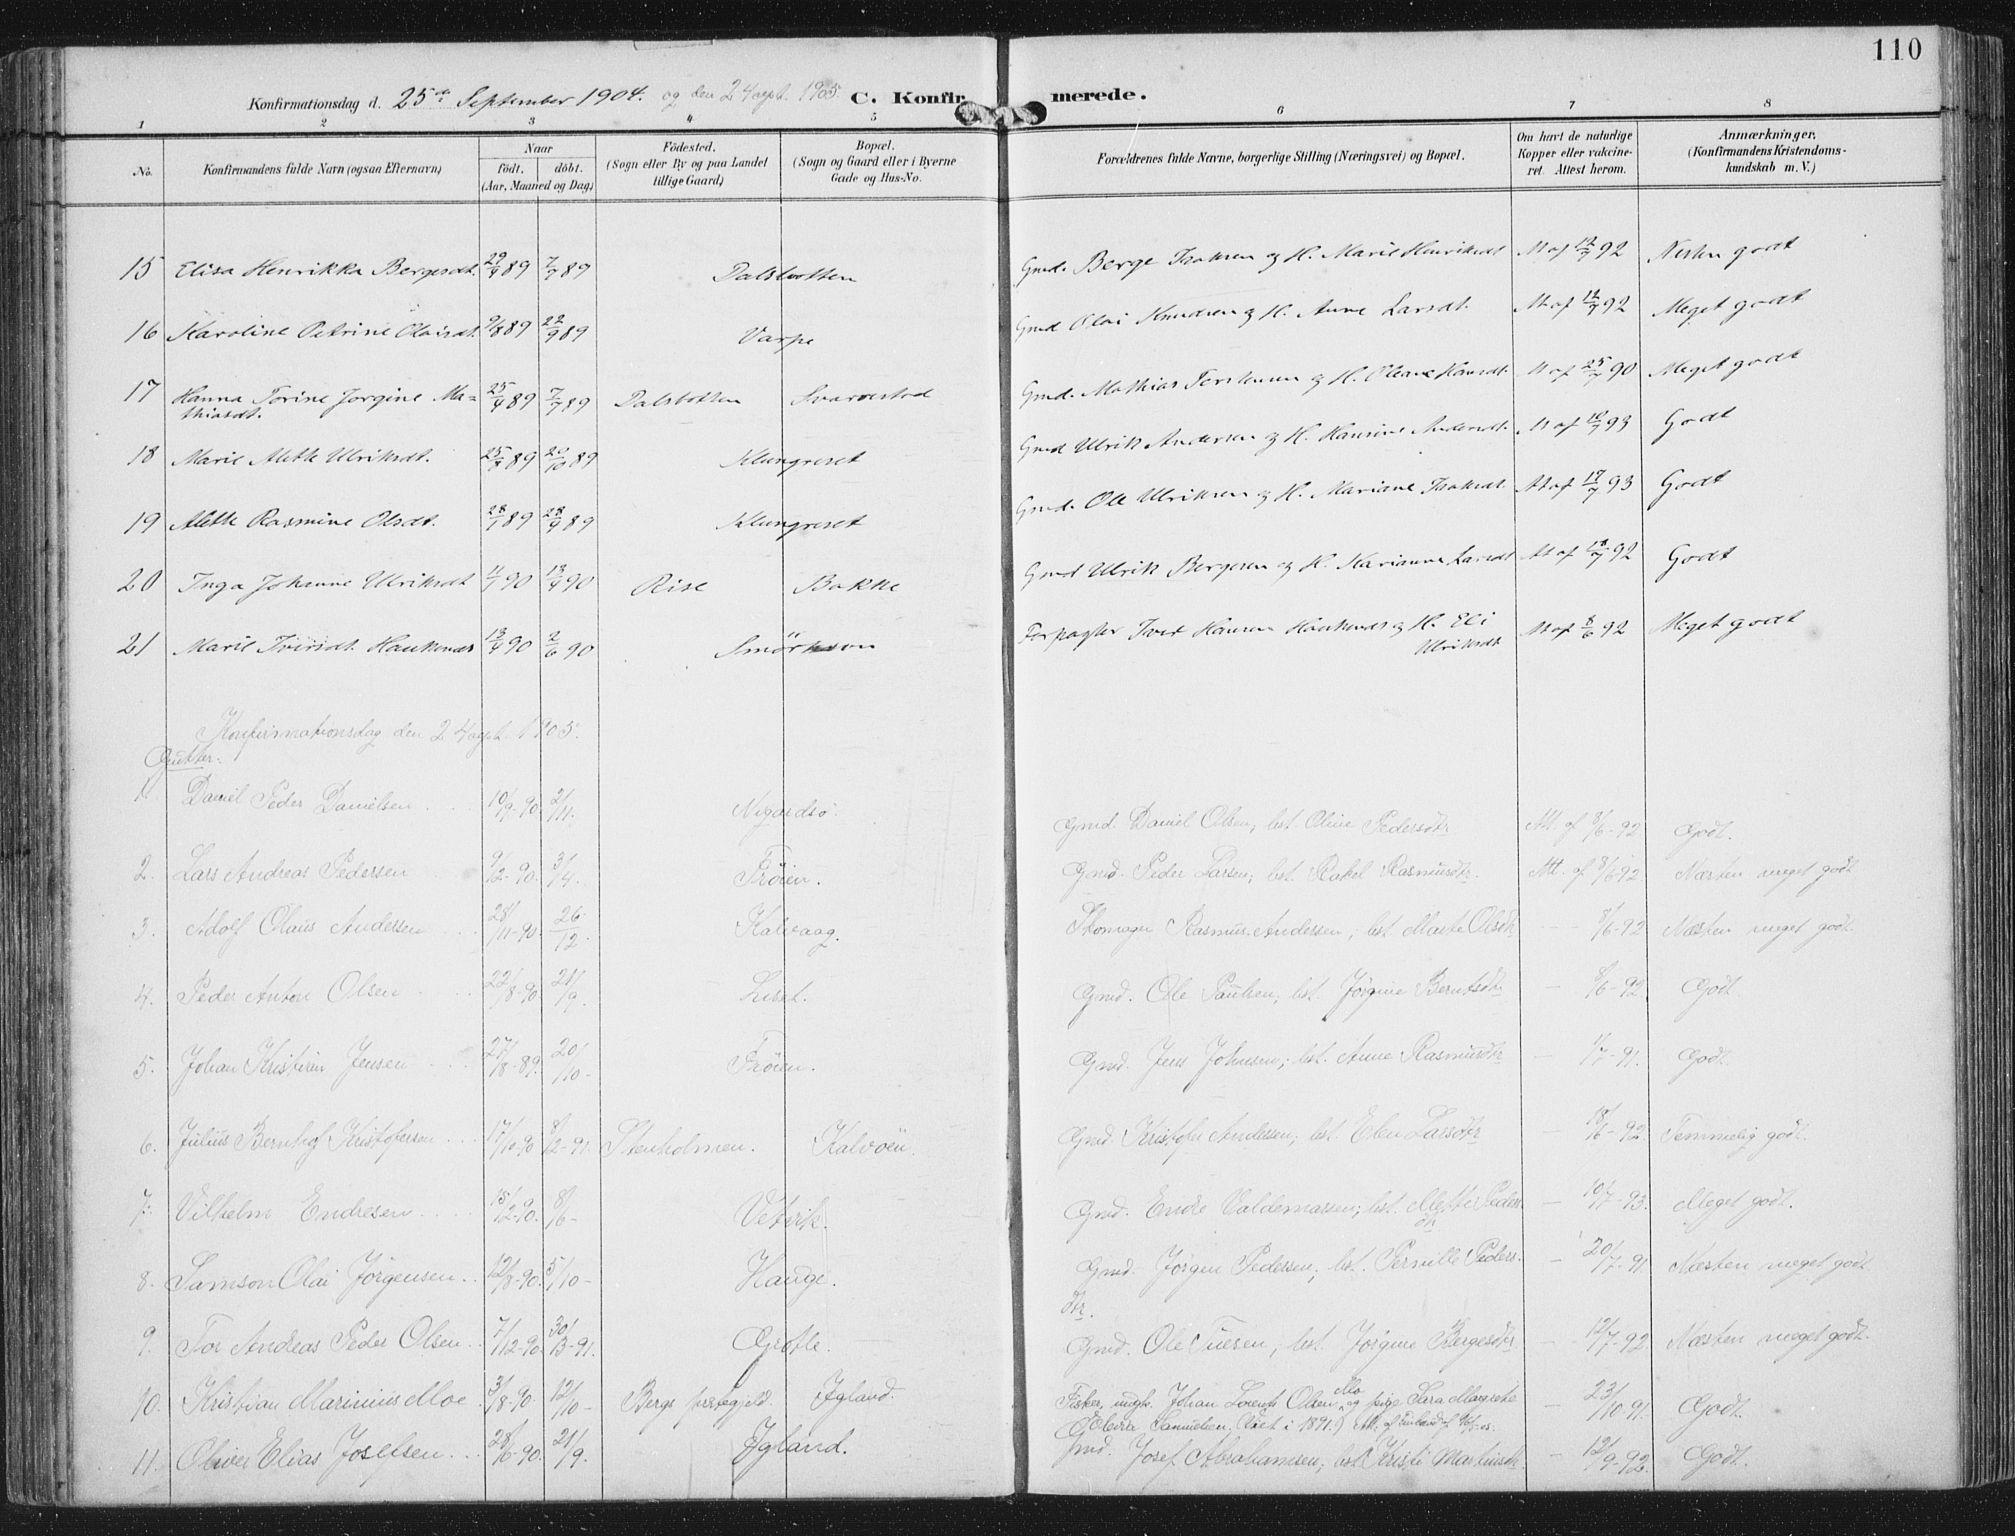 110
Konfirmationsdag d. 25de September 1904. og den 24 sept. 1905. C. Konfir merede.
1 2 3 4 5 6 7 8
No. Konfirmandens fulde Navn (ogsaa Efternavn) Naar födt. döbt. (Aar, Maaned og Dag) Födested. (Sogn eller By og paa Landet tillige Gaard) Bopæl. (Sogn og Gaard eller i Byerne Gade og Hus-No. Forældrenes fulde Navne, borgerlige Stilling (Næringsvei) og Bopæl. Om havt de naturlige Kopper eller vakcineret. Attest herom. Anmærkninger. (Konfirmandens Kristendomskundskab m. V.)
15 Elisa Henrikka Bergesdt. 29/4 89 7/7 89 Dalsbotten Gmd. Berge Isaksen og H. Marie Henriksdt. At af 12/7 92 Nesten godt
16 Karoline Petrine Olaisdt. 9/8 89 22/9 89 Varpe Gmd Olai Knudsen og H. Anne Larsdt. At af 12/7 92 Meget godt
17 Hanna Torine Jorgine Ma=
thiasdt. 25/4 89 7/7 89 Dalsbotten Svarvestad Gmd. Mathias Terkelsen og H. Oleane Hansdt. At af 25/7 90 Meget godt
18 Marie Alette Ulriksdt. 25/8 89 20/10 89 Klungreset Gmd Ulrik Andersen og H. Hansine Andersdt. At af 10/7 93 Godt
19 Alette Rasmine Olsdt. 28/1 89 28/4 89 Klungreset Gmd. Ole Ulriksen og H. Mariane Isaksdt. At af 17/7 93 Godt
20 Inga Johanne Ulriksdt 11/1 90 13/4 90 Rise Bakke Gmd Ulrik Bergesen og H. Marianne Larsdt At af 18/7 92 Godt
21 Marie Iversdt. Haukenæs 13/4 90 2/6 90 Smörhavn Forpagter Iver Hansen Haukenæs og H. Eli
Ulriksdt At af 8/6 92 Meget godt
Konfirmationsdag den 24 sept. 1905.
Gutter.
1. Daniel Peder Danielsen 10/9-90. 2/11. Nigardsö. Gmd. Daniel Olsen, bst. Oline Pedersdtr Att. af 8/6-92 Godt.
2. Lars Andreas Pedersen 9/2-90. 3/4. Fröien. Gmd. Peder Larsen; bst. Rakel Rasmusdtr. Att. af 8/6-92 Næsten meget godt
3. Adolf Olaus Andersen 28/11-90. 26/12. Kalvaag. Skomager Rasmus Andersen; bst. Marte Olsdtr 8/6-92 Næsten meget godt.
4. Peder Anton Olsen 22/8-90. 21/9. Liset. Gmd. Ole Paulsen, bst. Jörgine Berntsdtr - 8/6-92. Godt.
5. Johan Kristian Jensen 27/8-89. 20/10- Fröien. Gmd. Jens Johnsen; bst. Anne Rasmusdtr - 1/7-91. Godt.
6. Julius Bernhof Kristofersen 17/10-90 8/2-91. Stenholmen. Kalvöen. Gmd. Kristofer Andersen; bst. Elen Larsdtr - 18/6-92. Temmelig godt.
7. Vilhelm Endresen 15/2-90. 8/6- Vetvik. Gmd. Endre Valdemarsen; bst. Mette Peders
dtr - 10/7-93. Meget godt.
8. Samson Olai Jörgensen 12/8-90. 5/10- Hauge. Gmd. Jörgen Pedersen; bst. Pernille Peders-
dtr. - 20/7-91 Næsten meget godt
9. Tor Andreas Peder Olsen 7/12-90. 30/3-91. Grotle. Gmd. Ole Tuesen, bst. Jörgine Bergesdtr - 12/7-92 Næsten meget godt.
10. Kristian Marinius Moe 3/8-90. 12/10- Bergs prestegjeld. Igland. Fisker, ungk. Johan Lorents Olsen Mo og pige Sara Margrete
Samuelsen. 1891. - 23/10-91. Godt.
11. Oliver Elias Josefsen 28/6-90. 21/9. Igland. Gmd. Josef Abrahamsen; bst. Kristi Martinsdtr. - 12/9-92. Godt.